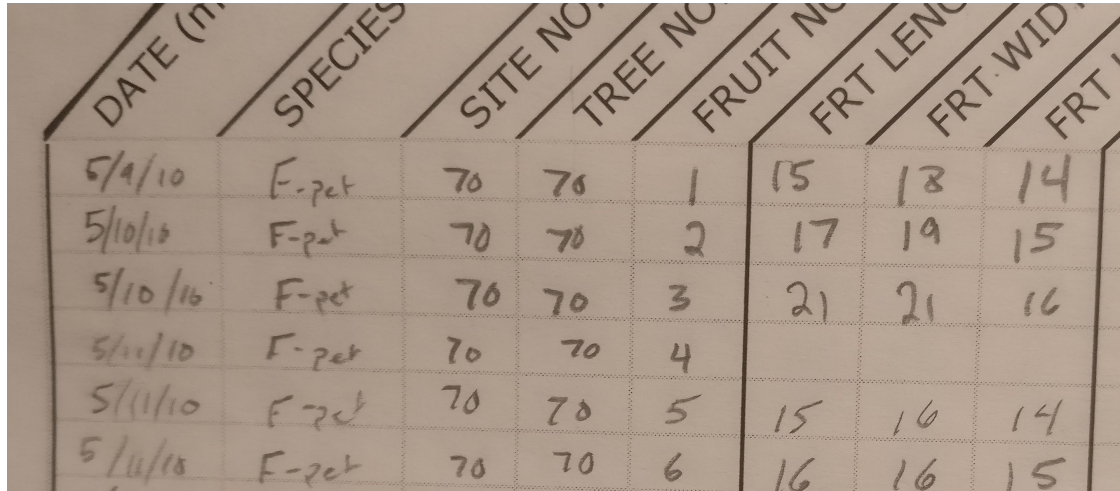 DATE (m SPECIES SITE NO. TREE NO. FRUIT NO FRT LENG FRT WIDT FRT
5/9/10 F-pet 70 70 1 15 18 14
5/10/10 F-pet 70 70 2 17 19 15
5/10/10 F-pet 70 70 3 21 21 16
5/11/10 F-pet 70 70 4
5/11/10 F-pet 70 70 5 15 16 14
5/11/10 F-pet 70 70 6 16 16 15